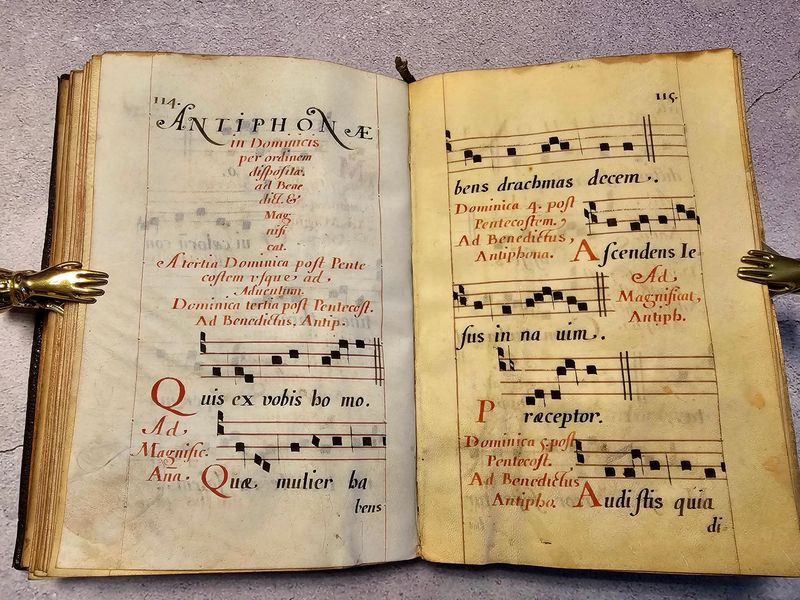 114.
ANTIPHONÆ
in Dominicis
per ordinem
dispositæ.
ad Bene
dict. &
Mag
nifi
cat.
A tertia Dominica post Pente
costem vsque, ad,
Aduentum.
Dominica tertia post Pentecost.
Ad Benedictus, Antip.
Quis ex vobis ho mo.
Ad,
Magnific.
Aña.
Quæ mulier ha
bens
115.
bens drachmas decem.
Dominica 4. post
Pentecostem.
Ad Benedictus,
Antiphona.
Ascendens Ie
sus in na uim.
Ad,
Magnificat,
Antiph.
Præceptor.
Dominica 5. post
Pentecost.
Ad Benedictus
Antipho.
Audistis quia
di